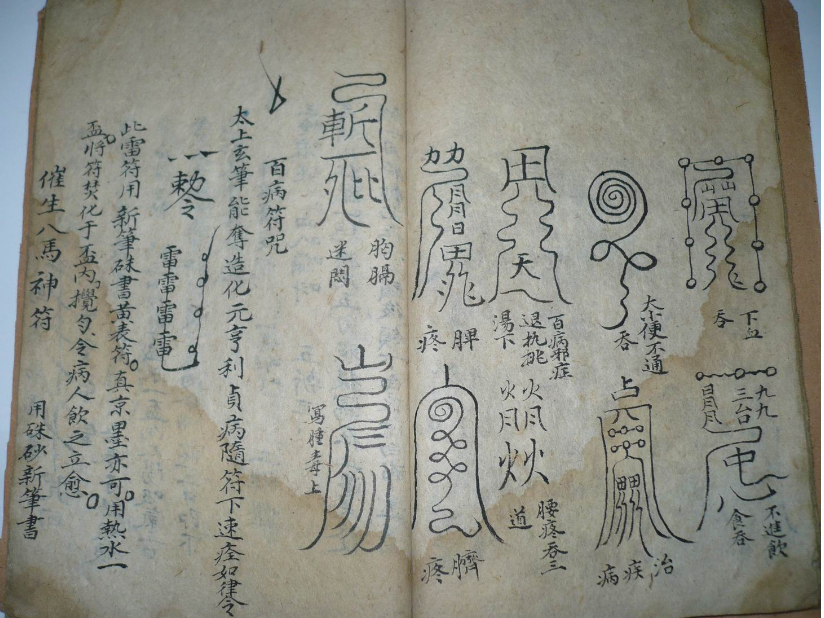 下血
吞
九九
三台
不進飲
食吞
大小便不通
吞
治
疾
病
百病邪症
湯下
腰疼吞三
道
脾
疼
臍
疼
胸膈
迷悶
寫腫毒上
百病符咒
太上玄筆能奪造化元亨利貞病隨符下速痊如律令
敕令
雷雷雷雷
此雷符用新筆硃書黃表符真京墨亦可用熱水一
盃將符焚化于盃內攪勻令病人飲之立愈
催生八馬神符
用硃砂新筆書